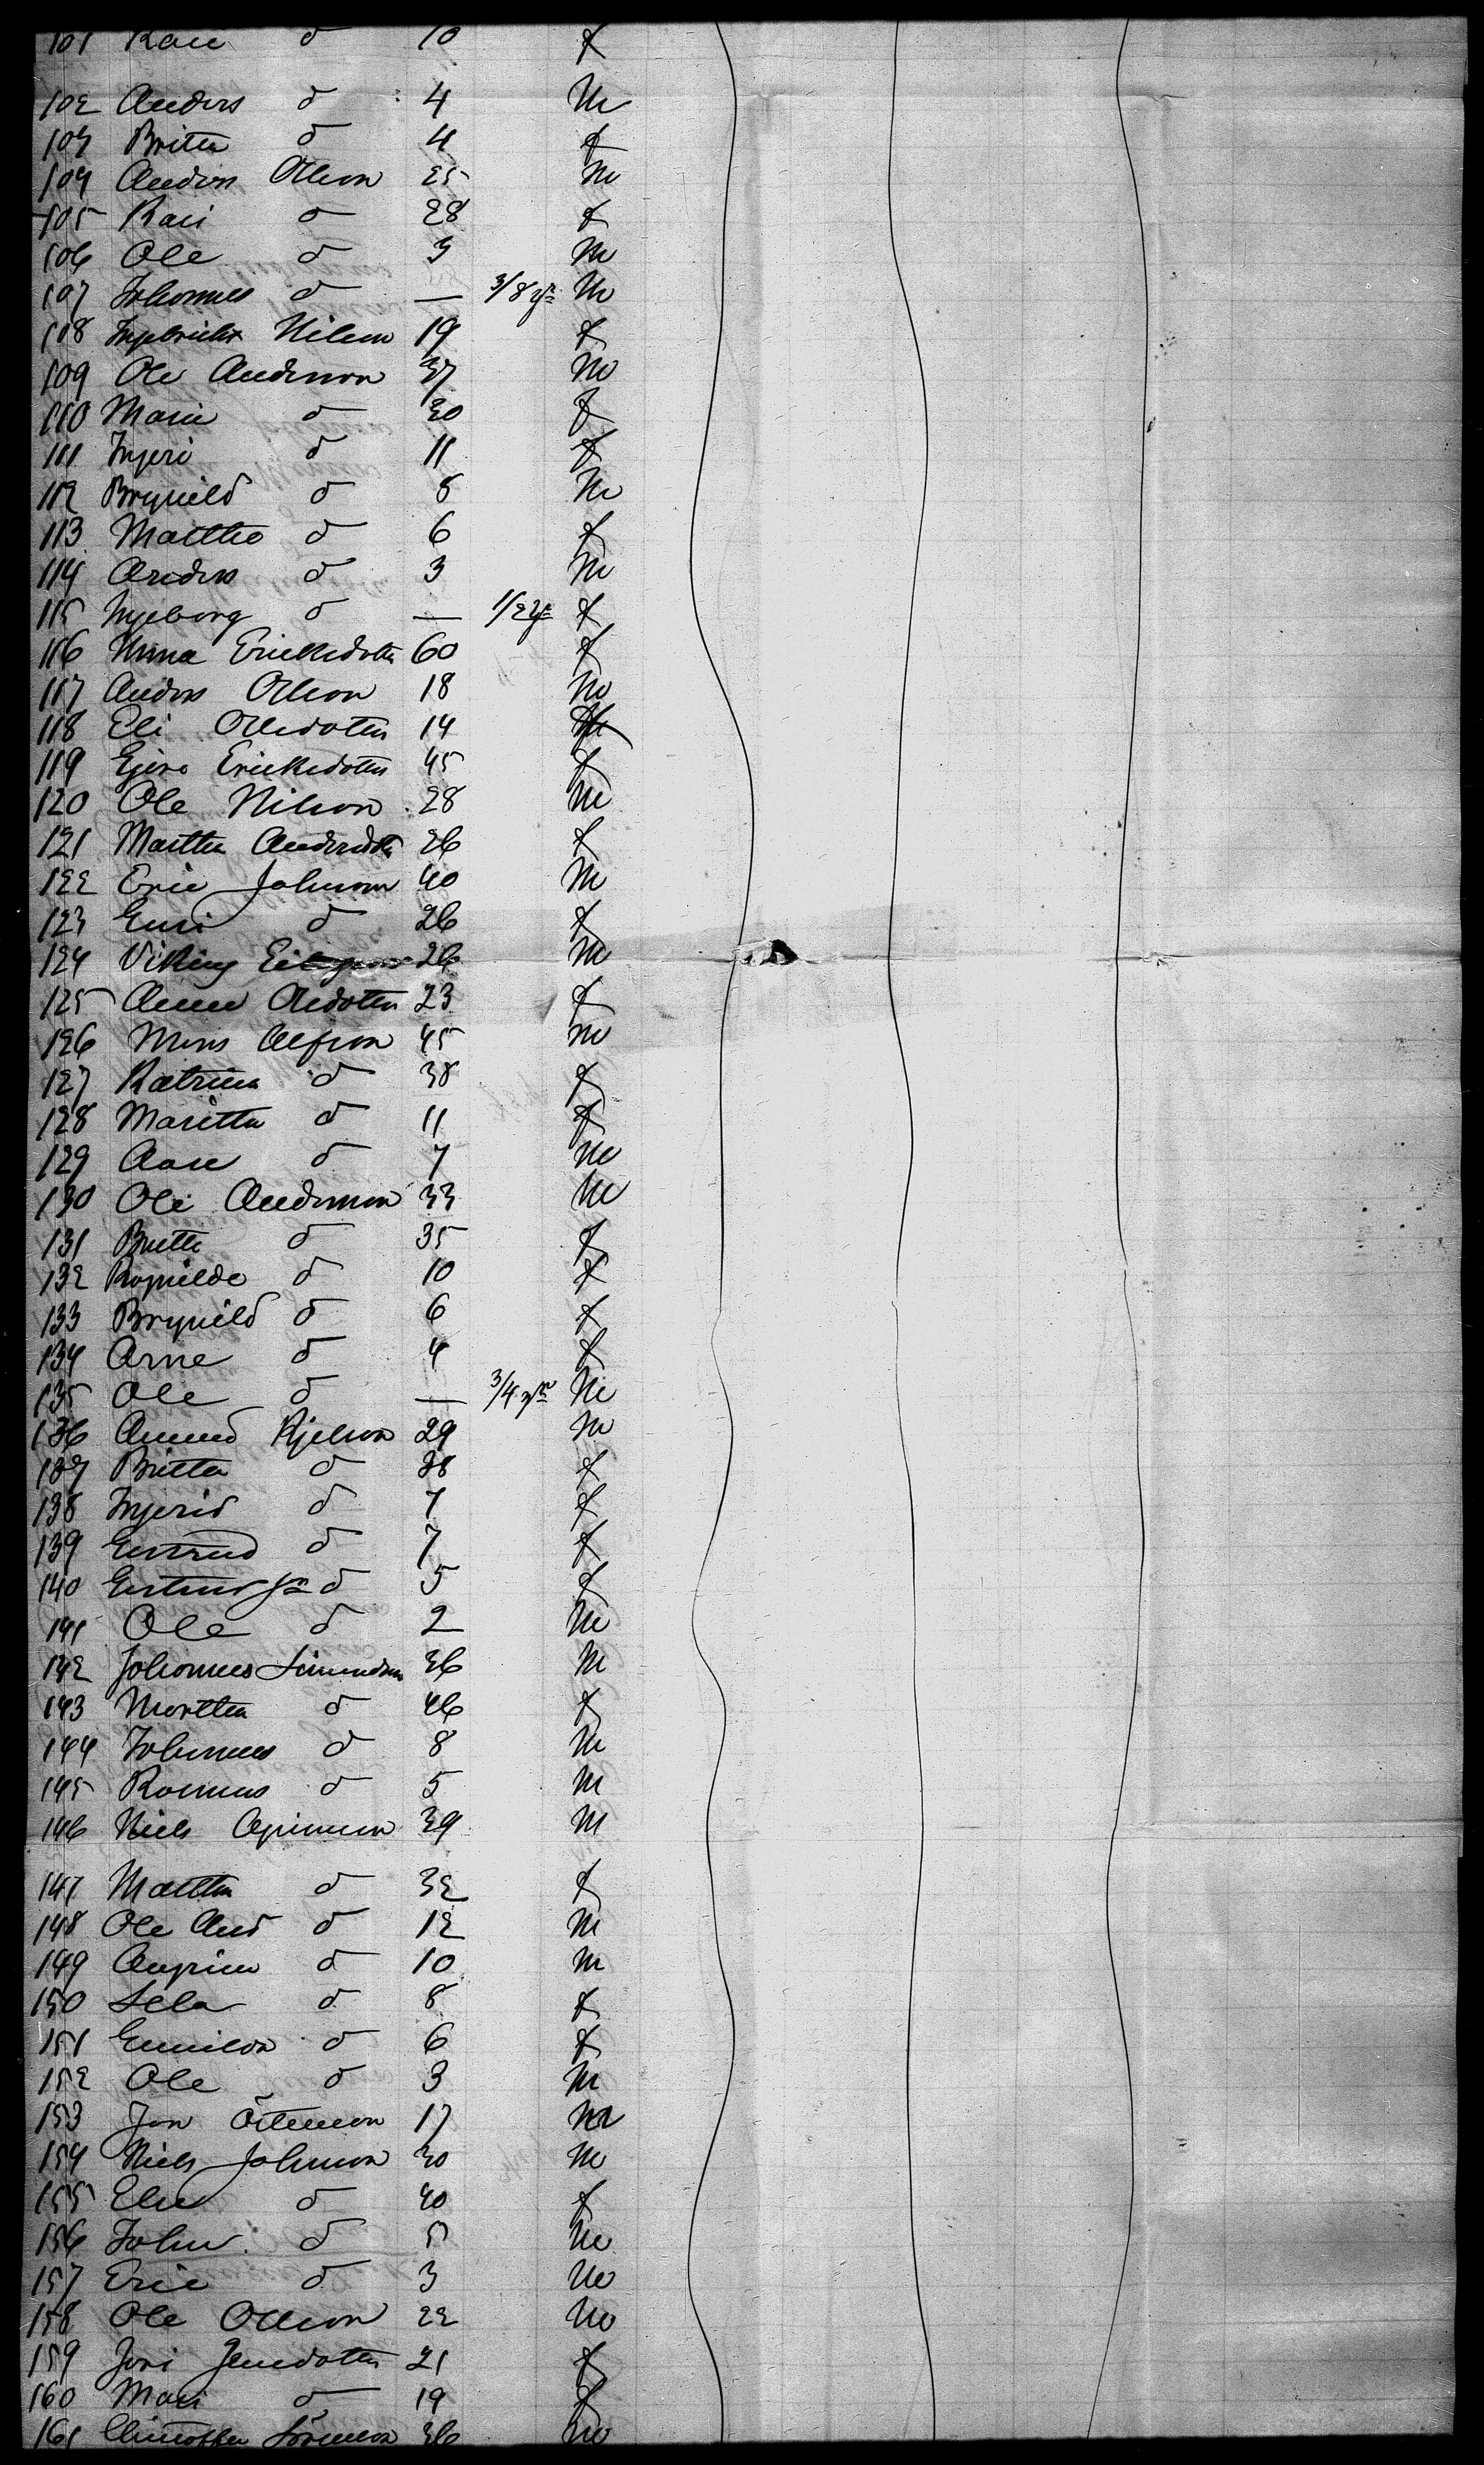 101 Kari d 10 f
102 Anders d 4 m
103 Britta d 4 f
104 Anders Olson 25 m
105 Kari d 28 f
106 Ole d 3 m
107 Johannes d — 3/8 yr m
108 Ingebricht Nilson 19 f
109 Ole Anderson 37 m
110 Marie d 30 f
111 Ingeri d 11 f
112 Brynild d 8 m
113 Martha d 6 f
114 Anders d 3 m
115 Ingeborg d — 1/2 yr f
116 Ericksdotter 60 f
117 Anders Olson 18 m
118 Eli Olsdotter 14
119 Ericksdotter 45 f
120 Ole Nilson 28 m
121 Martha Andersdtr 26 f
122 Eric Johnson 40 m
123 Guri d 26 f
124 Viking 26 m
125 Anna Olsdotter 23 f
126 Mons Alfson 45 m
127 Katrina d 38 f
128 Maritta d 11 f
129 d 7 m
130 Ole Anderson 33 m
131 d 35 f
132 d 10 f
133 Brynild d 6 f
134 Arne d 4 f
135 Ole d — 3/4 yr m
136 Amund 29 m
137 Britta d 38 f
138 Ingerid d 7 f
139 Gertrud d 7 f
140 Gertrud Jr d 5 f
141 Ole d 2 m
142 Johannes Simundson 36 m
143 Martha d 46 f
144 Johannes d 8 m
145 Rasmus d 5 m
146 Niels 39 m
147 Martha d 32 f
148 Ole And d 12 m
149 d 10 m
150 d 8 f
151 d 6 f
152 Ole d 3 m
153 Jon 17 m
154 Niels Johnson 30 m
155 d 40 f
156 John d 5 m
157 Eric d 3 m
158 Ole Olson 22 m
159 Jensdotter 21 f
160 Mari d 19 f
161 36 m